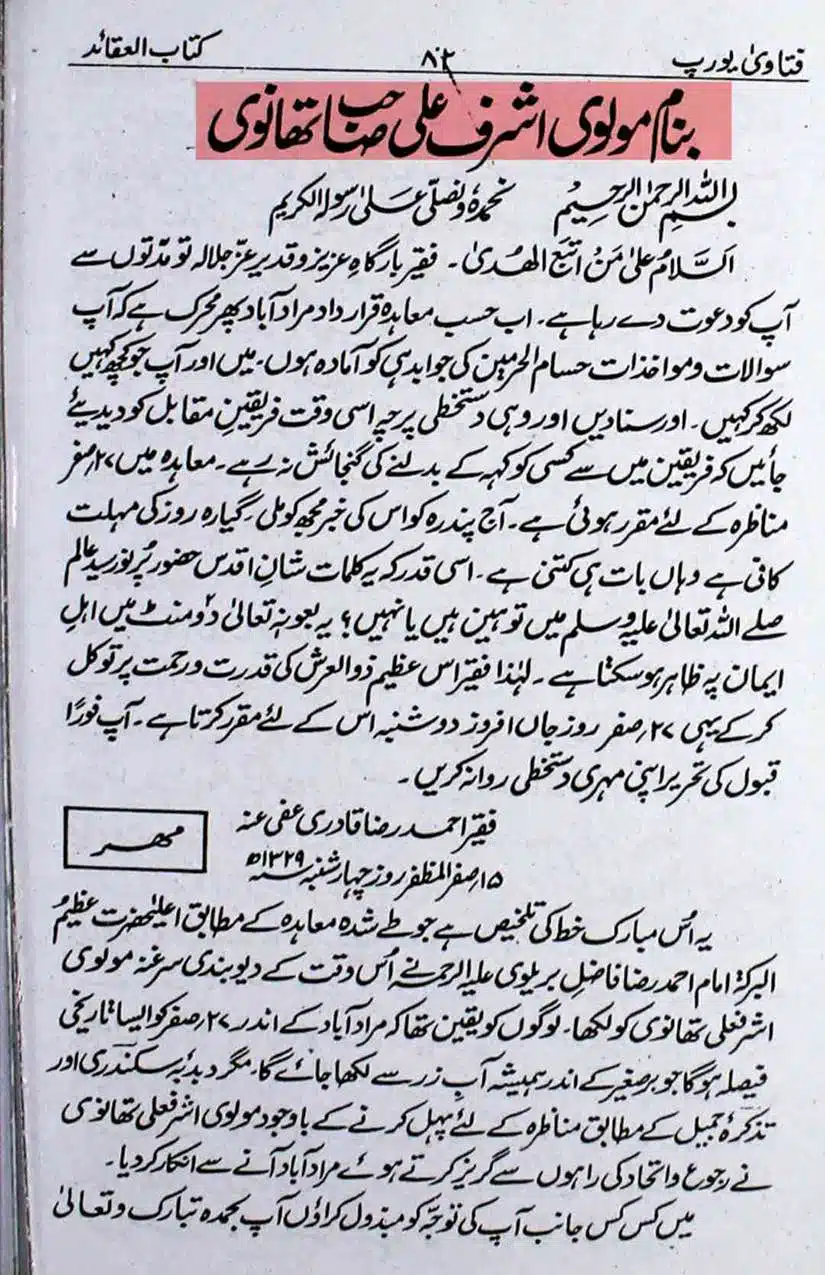 فتاویٰ یورپ ۸۲ کتاب العقائد
بنام مولوی اشرف علی صاحب تھانوی
بسم اللہ الرحمٰن الرحیم نحمدہٗ و نصلی علیٰ رسولہ الکریم
السلام علیٰ من اتبع الھدیٰ۔ فقیر بارگاہِ عزیز و قدیر عز جلالہ تو مدتوں سے
آپ کو دعوت دے رہا ہے۔ اب حسب معاہدہ قرار داد مراد آباد پھر محرک ہے کہ آپ
سوالات و مواخذات حسام الحرمین کی جوابدہی کو آمادہ ہوں۔ میں اور آپ جو کچھ کہیں
لکھ کر کہیں۔ اور سنا دیں اور وہی دستخطی پرچہ اسی وقت فریقینِ مقابل کو دیدیئے
جائیں کہ فریقین میں سے کسی کو کہہ کے بدلنے کی گنجائش نہ رہے۔ معاہدہ میں ۲۷؍صفر
مناظرہ کے لئے مقرر ہوئی ہے۔ آج پندرہ کو اس کی خبر مجھ کو ملی۔ گیارہ روز کی مہلت
کافی ہے وہاں بات ہی کتنی ہے۔ اسی قدر کہ یہ کلمات شانِ اقدس حضور پُر نور سید عالم
صلے اللہ تعالیٰ علیہ وسلم میں توہین ہیں یا نہیں؟ یہ بعونہ تعالیٰ دو منٹ میں اہلِ
ایمان پہ ظاہر ہو سکتا ہے۔ لہٰذا فقیر اس عظیم ذوالعرش کی قدرت و رحمت پر توکل
کر کے یہی ۲۷؍صفر روز جاں افروز دوشنبہ اس کے لئے مقرر کرتا ہے۔ آپ فوراً
قبول کی تحریر اپنی مہری دستخطی روانہ کریں۔
فقیر احمد رضا قادری عفی عنہ
مہر
۱۵؍صفر المظفر روز چہار شنبہ ۱۳۲۹ھ
یہ اُس مبارک خط کی تلخیص ہے جو طے شدہ معاہدہ کے مطابق اعلیٰحضرت عظیمُ
البرکۃ امام احمد رضا فاضلِ بریلوی علیہ الرحمہ نے اُس وقت کے دیوبندی سرغنہ مولوی
اشرفعلی تھانوی کو لکھا۔ لوگوں کو یقین تھا کہ مراد آباد کے اندر ۲۷؍صفر کو ایسا تاریخی
فیصلہ ہوگا جو برصغیر کے اندر ہمیشہ آبِ زر سے لکھا جائے گا۔ مگر دبدبہ سکندری اور
تذکرۂ جمیل کے مطابق مناظرہ کے لئے پہل کرنے کے باوجود مولوی اشرفعلی تھانوی
نے رجوع و اتحاد کی راہوں سے گریز کرتے ہوئے مراد آباد آنے سے انکار کر دیا۔
میں کس کس جانب آپ کی توجّہ کو مبذول کراؤں آپ بحمدہ تبارک و تعالیٰ